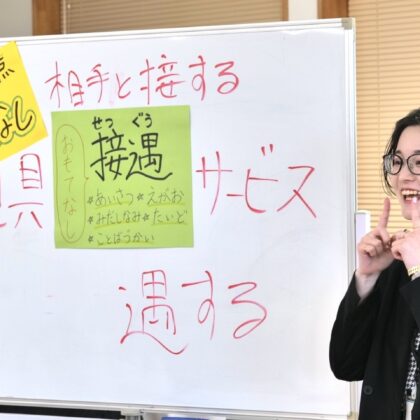 点
なし
相手と接する
せつ ぐう
接遇
おもてなし
・あいさつ・えがお
・みだしなみ・たいど
・ことばづかい
具
サービス
遇する